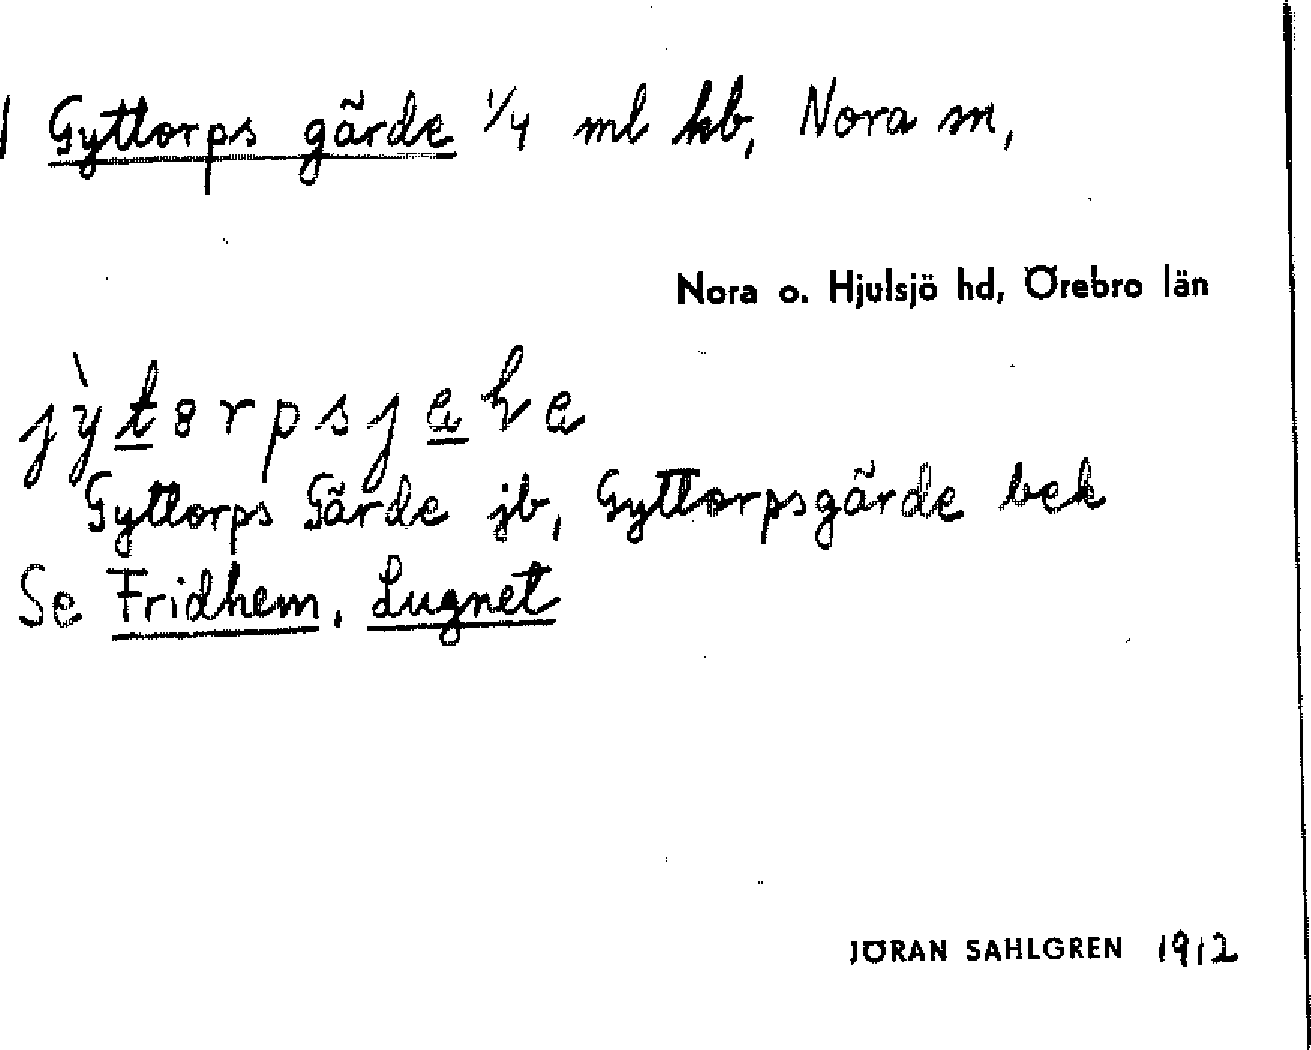 Gyttorps gärde 1/4 ml hb, Nora sn,
Nora o. Hjulsjö hd, Örebro län
Gyttorps Gärde jb, Gyttorpsgärde bek
Se Fridhem, Lugnet
JÖRAN SAHLGREN 1912